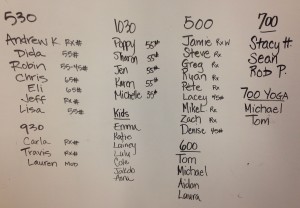 530
Andrew K RX#
Dida 55#
Robin 55-45#
Chris 65#
Eli 65#
Jeff RX#
Lisa 55#
930
Carla RX#
Travis RX#
Lauren MOD
1030
Poppy 55#
Sharon 55#
Jen 55#
Karen 55#
Michelle 35#
Kids
Emma
Katie
Lainey
Lulu
Cole
Jakob
Anna
500
Jamie RX W
Steve RX#
Greg RX#
Ryan RX#
Pete RX#
Lacey 45#
Mike L RX#
Zach RX#
Denise 45#
600
Tom
Michael
Aidan
Laura
700
Stacy H.
Sean
Rob P.
700 YOGA
Michael
Tom